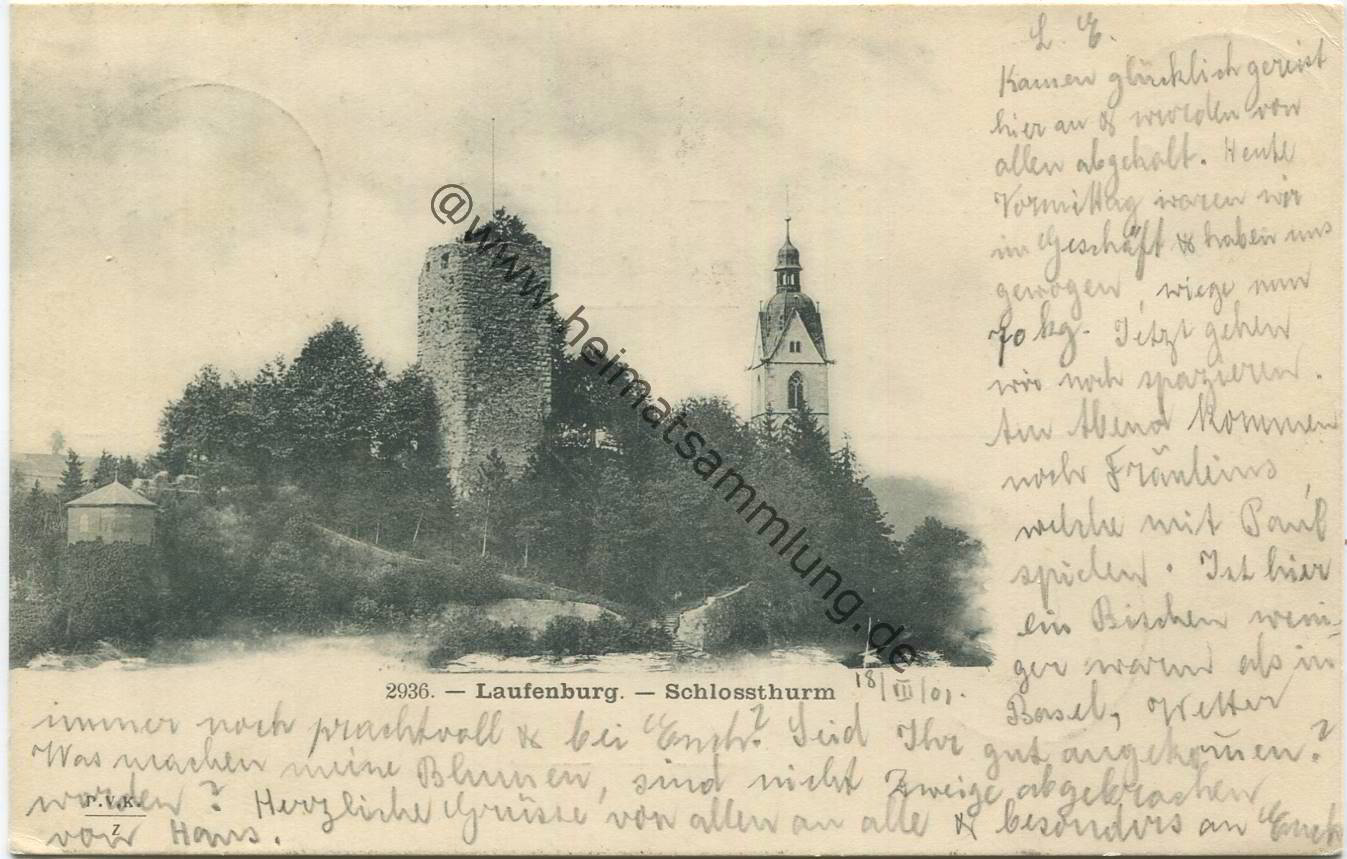 L. E.
Kamen glücklich gereist
hier an & wurden von
allen abgeholt. Heute
Vormittag waren wir
im Geschäft & haben uns
gewogen, wiege nun
70 kg. Jetzt gehen
wir noch spazieren.
Am Abend kommen
noch Fräuleins,
welche mit Paul
spielen. Ist hier
ein Bischen weni-
ger warm als in
Basel, Wetter
2936. — Laufenburg. — Schlossthurm
18/III/01.
immer noch prachtvoll & bei Euch? Seid Ihr gut angekom̅en?
Was machen meine Blumen, sind nicht Zweige abgebrochen
worden? Herzliche Grüsse von allen an alle & besonders an Euch
von Hans.
P. V. K.
Z
@www.heimatsammlung.de